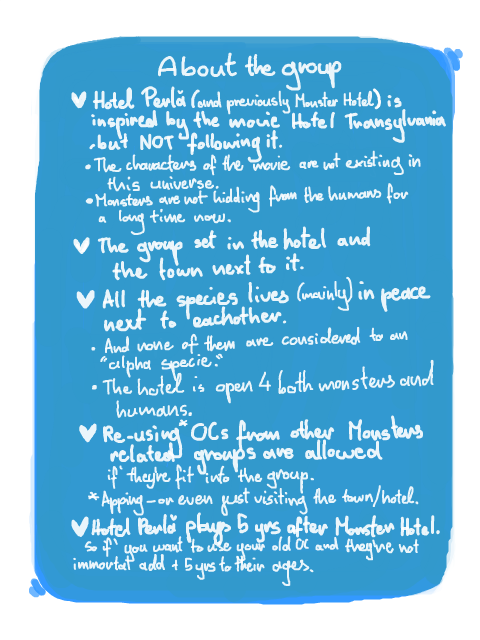 About the group
♥ Hotel Perlä (and previously Monster Hotel) is
inspired by the movie Hotel Transylvania
, but NOT following it.
• The characters of the movie are not existing in
this universe.
• Monsters are not hidding from the humans for
a long time now.
♥ The group set in the hotel and
the town next to it.
♥ All the species lives (mainly) in peace
next to eachother.
• And none of them are considered to an
"alpha specie."
• The hotel is open 4 both monsters and
humans.
♥ Re-using* OCs from other Monsters
related groups are allowed
if they're fit into the group.
*Apping - or even just visiting the town/hotel.
♥ Hotel Perlä plays 5 yrs after Monster Hotel.
so if you want to use your old OC and they're not
immortal add + 5 yrs to their ages.